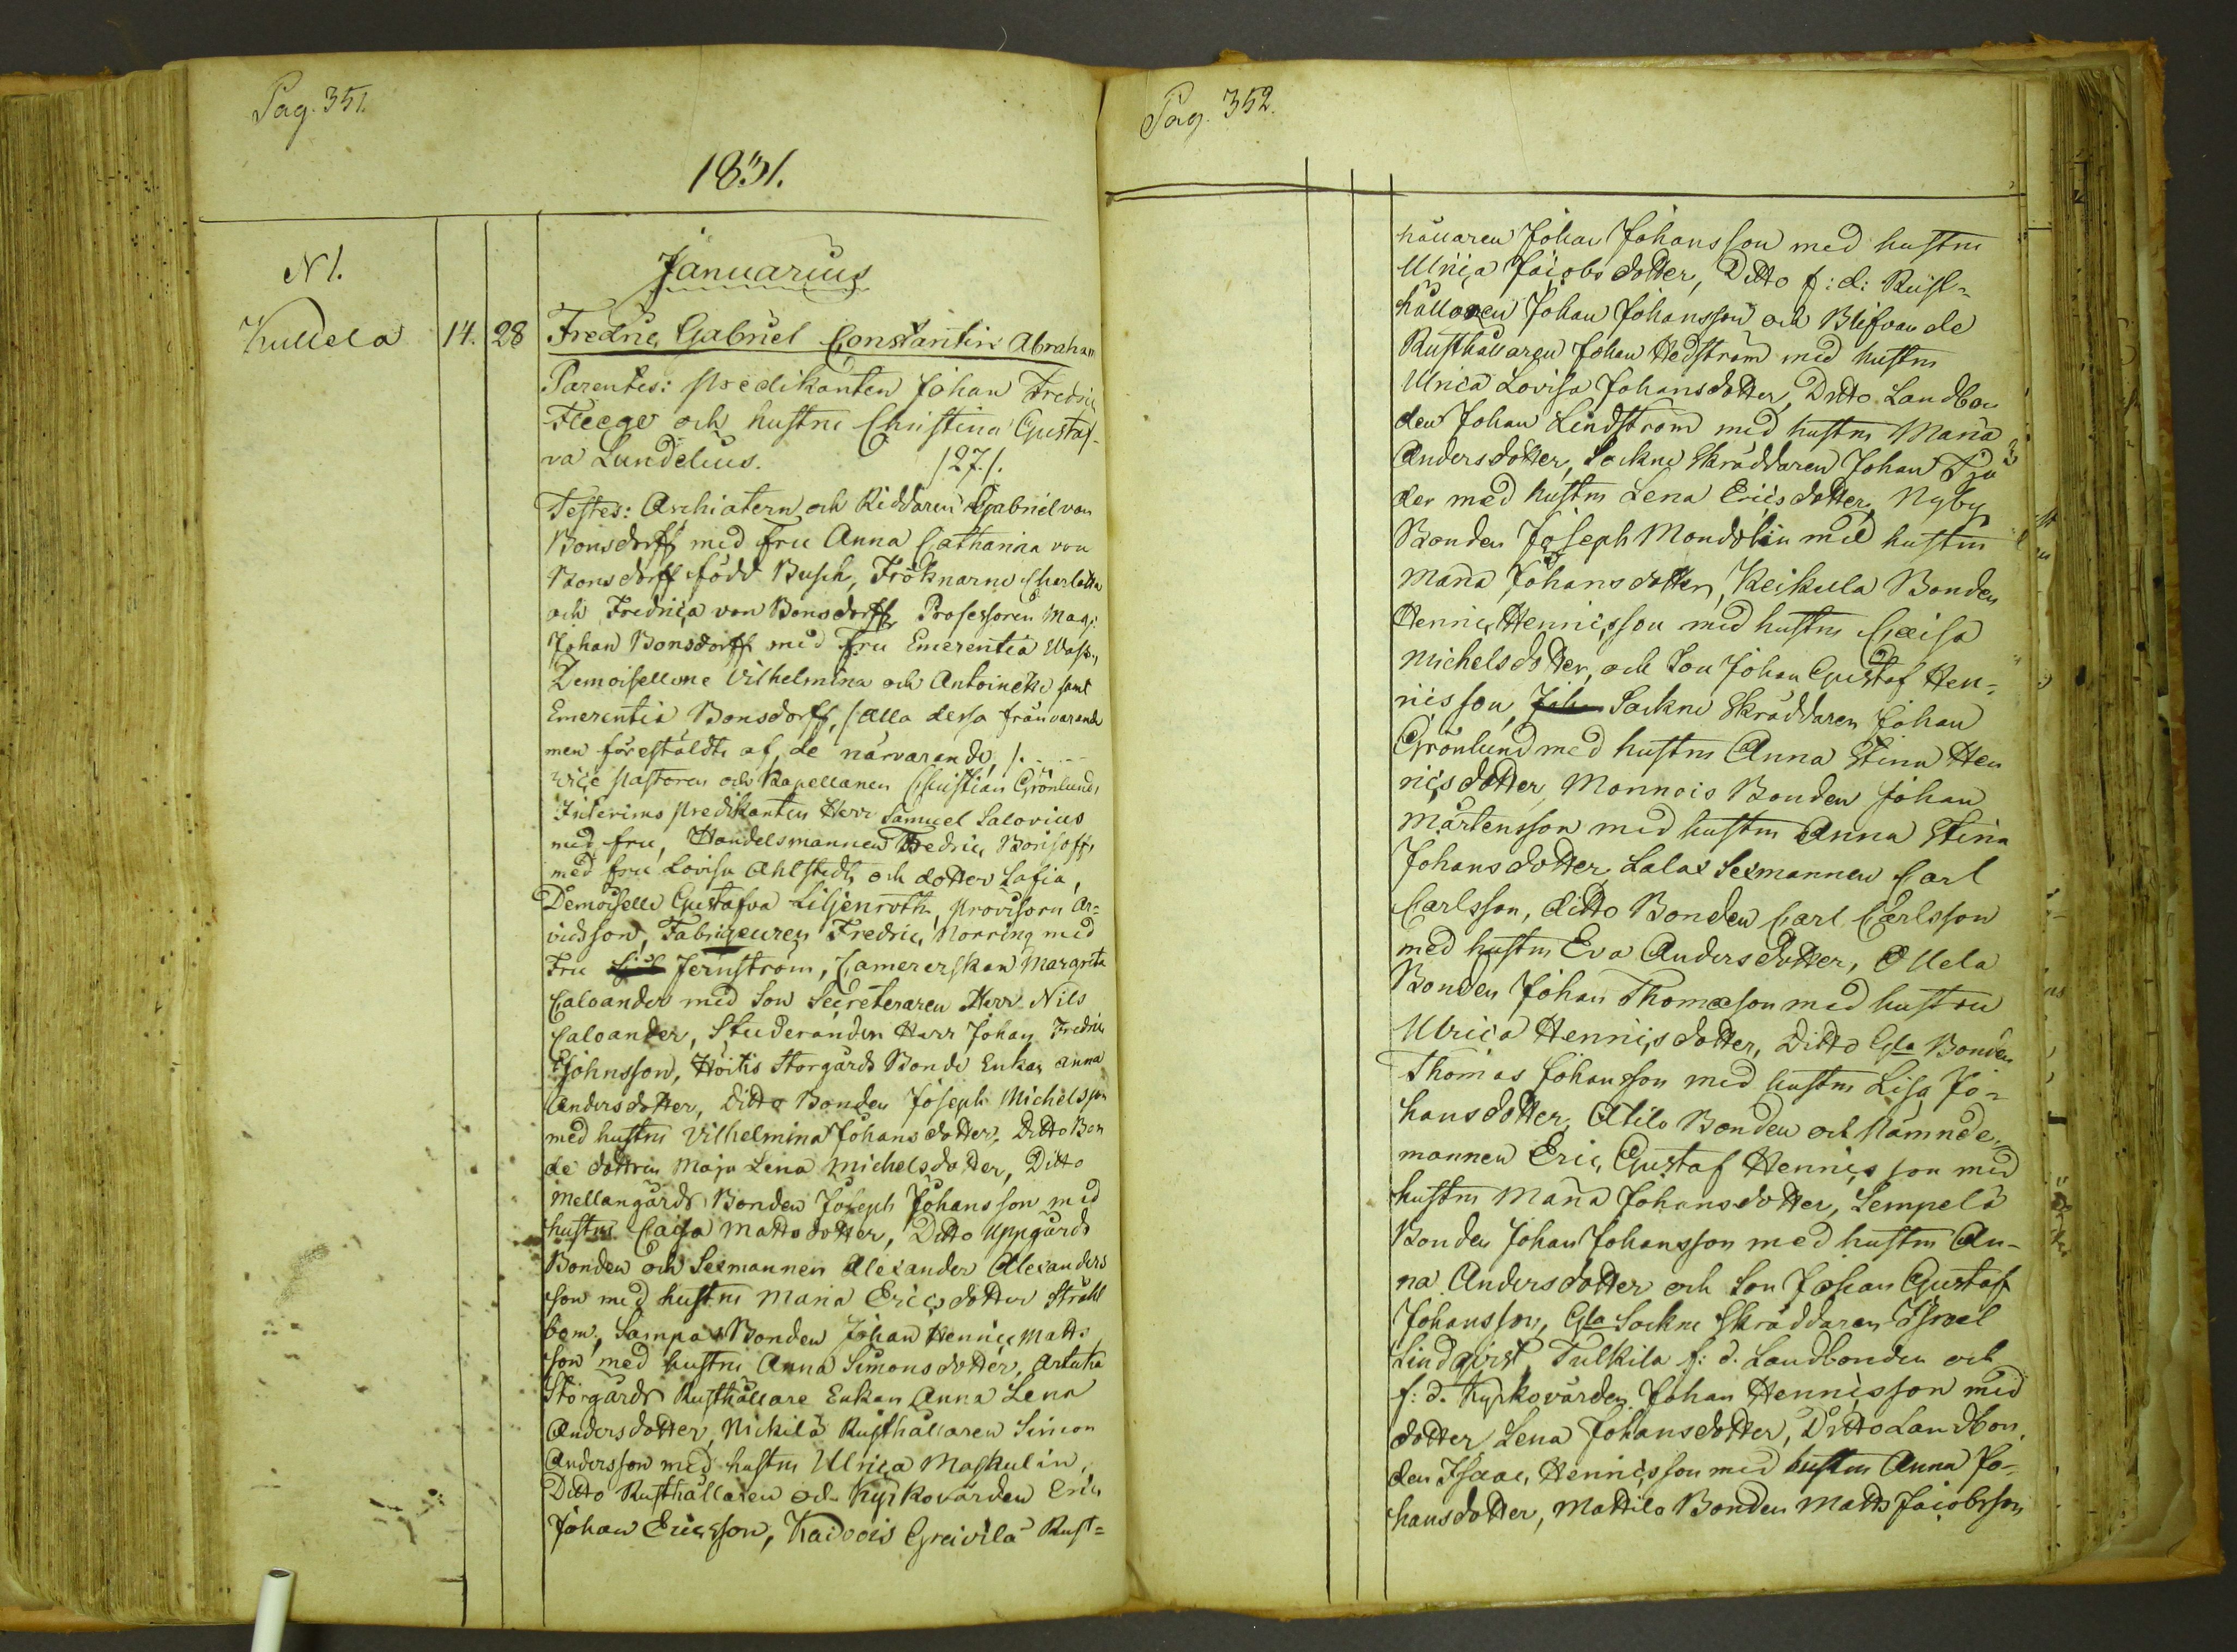 Pag. 351.
1831.
N 1.
Januarius
Kullela 14. 28 Fredric Gabriel Constantin Abraham
Parentes: predikanten Johan Fredric
Fleege och hustru Christina Gustaf-
va Lundelius. /27./.
Testes: Archiatern och Riddaren Gabriel von
Bonsdorff med fru Anna Catharina von
Bonsdorff född Busch, Fröknarne Charlotta
och Fredrica von Bonsdorff Professoren Mag:
Johan Bonsdorff med Fru Emerentia
Demoisellerne Vilhelmina och Antoinette samt
Emerentia Bonsdorff, /alla dessa frånvarande
men förestäldte af de närvarande, /.
vice pastoren och Kapellanen Christian Grönlund,
Interims predikanten Herr Samuel Salovius
med fru, Handelsmannen Fredric Borisoff,
med fru Lovisa Ahlstedt och dotter Sofia,
Demoiselle Gustafva Liljenroth, provisorn Ar=
vidsson, Fabrigeuren Fredric Norring med
Fru Jernström, Camererskan Margreta
Caloander med Son Secreteraren Herr Nils
Caloander, Studeranden Herr Johan Fredric
Johnsson, Höitis Storgårds Bonde Enkan Anna
Andersdotter, Ditto Bonden Joseph Michelsson
med hustru Vilhelmina Johansdotter, Ditto Bon
de dottren Maja Lena Michelsdotter, Ditto
Mellangårds Bonden Joseph Johansson med
hustru Caisa Mattsdotter, Ditto Uppgårds
Bonden och Sexmannen Alexander Alexanders
son med hustru Maria Ericsdotter Stråhl
bom, Sampa Bonden Johan Henric Matts
son med hustru Anna Simonsdotter, Artuka
Storgårds Rusthållare Enkan Anna Lena
Andersdotter, Nickilä Rusthållaren Simon
Andersson med hustru Ulrica Maskulin,
Ditto Rusthållaren och Kyrkovärden Eric
Johan Ericsson, Kaivois Greivilä Rust=
Pag. 352.
hållaren Johan Johansson med hustru
Ulrica Jacobsdotter, Ditto f: d: Rust-
hållaren Johan Johansson och Blifvande
Rusthållaren Johan Hedström med hustru
Ulrica Lovisa Johansdotter, Ditto Landbon
den Johan Lindström med hustru Maria
Andersdotter, Sockne Skräddaren Johan
der med hustru Lena Ericsdotter, Nyby
Bonden Joseph Mondolin med hustru
Maria Johansdotter, Keikula Bonden
Henric Henricsson med hustru Caisa
Michelsdotter, och Son Johan Gustaf Hen-
ricsson, Sockne Skräddaren Johan
Grönlund med hustru Anna Stina Hen
ricsdotter, Monnois Bonden Johan
Mårtensson med hustru Anna Stina
Johansdotter, Lalax Sexmannen Carl
Carlsson, ditto Bonden Carl Carlsson
med hustru Eva Andersdotter, Ollela
Bonden Johan Thomæson med hustru
Ulrica Henricsdotter, Ditto Gla Bonden
Thomas Johansson med hustru Lisa Jo-
hansdotter, Atila Bonden och Nämnde-
mannen Eric Gustaf Henricsson med
hustru Maria Johansdotter, Lempelä
Bonden Johan Johansson med hustru An-
na Andersdotter och Son Johan Gustaf
Johansson, Gla Sockne Skräddaren Israel
Lindqvist, Tulkila f: d. Landbonden och
f: d. Kyrkovärden Johan Henricsson med
dotter Lena Johansdotter, Ditto Landbon
den Isaac Henricsson med hustru Anna Jo-
hansdotter, Mattila Bonden Matts Jacobsson